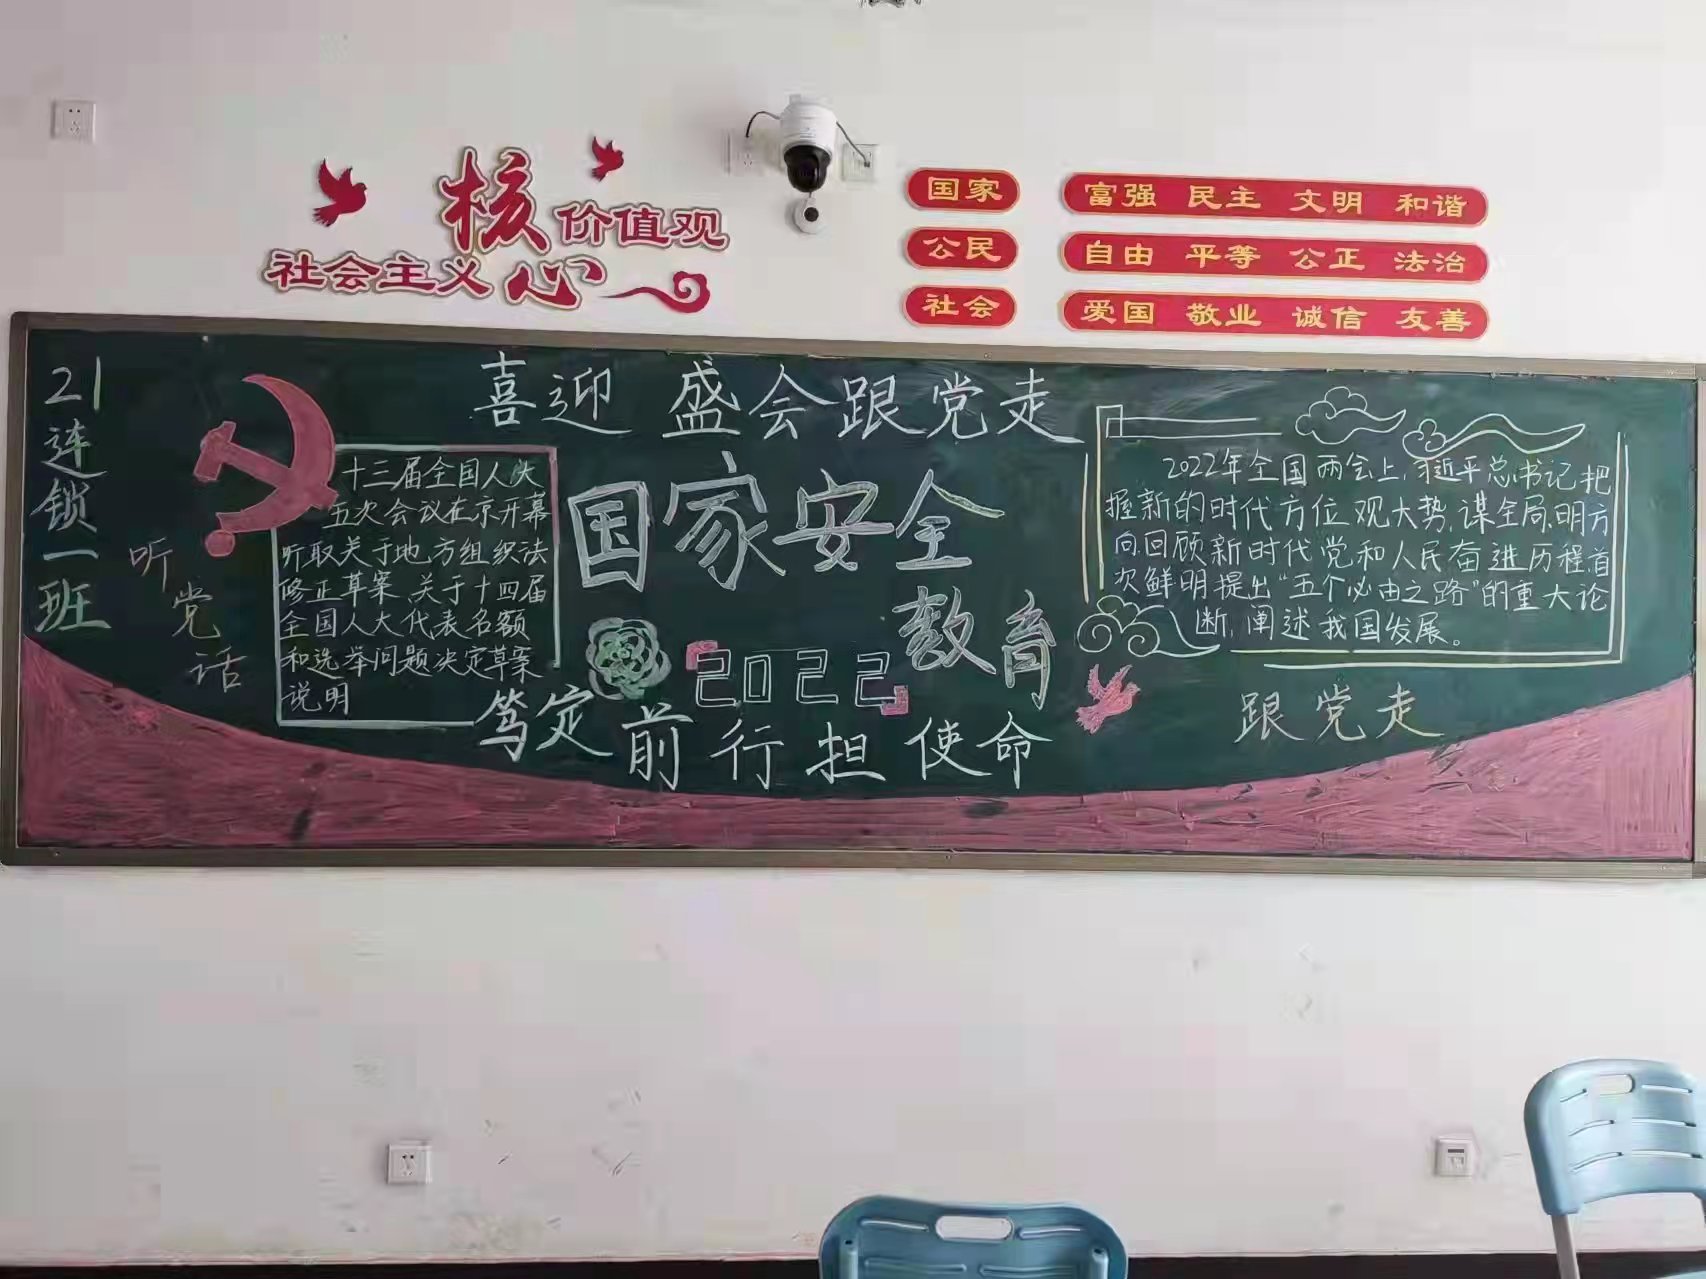 核
价值观
社会主义心
国家 富强 民主 文明 和谐
公民 自由 平等 公正 法治
社会 爱国 敬业 诚信 友善
21连锁一班
听党话
喜迎 盛会跟党走
国家安全
教育
2022
笃定前行担使命
十三届全国人大
五次会议在京开幕
听取关于地方组织法
修正草案.关于十四届
全国人大代表名额
和选举问题决定草案
说明
2022年全国两会上,习近平总书记把
握新的时代方位观大势,谋全局,明方
向,回顾新时代党和人民奋进历程,首
次鲜明提出“五个必由之路”的重大论
断,阐述我国发展。
跟党走